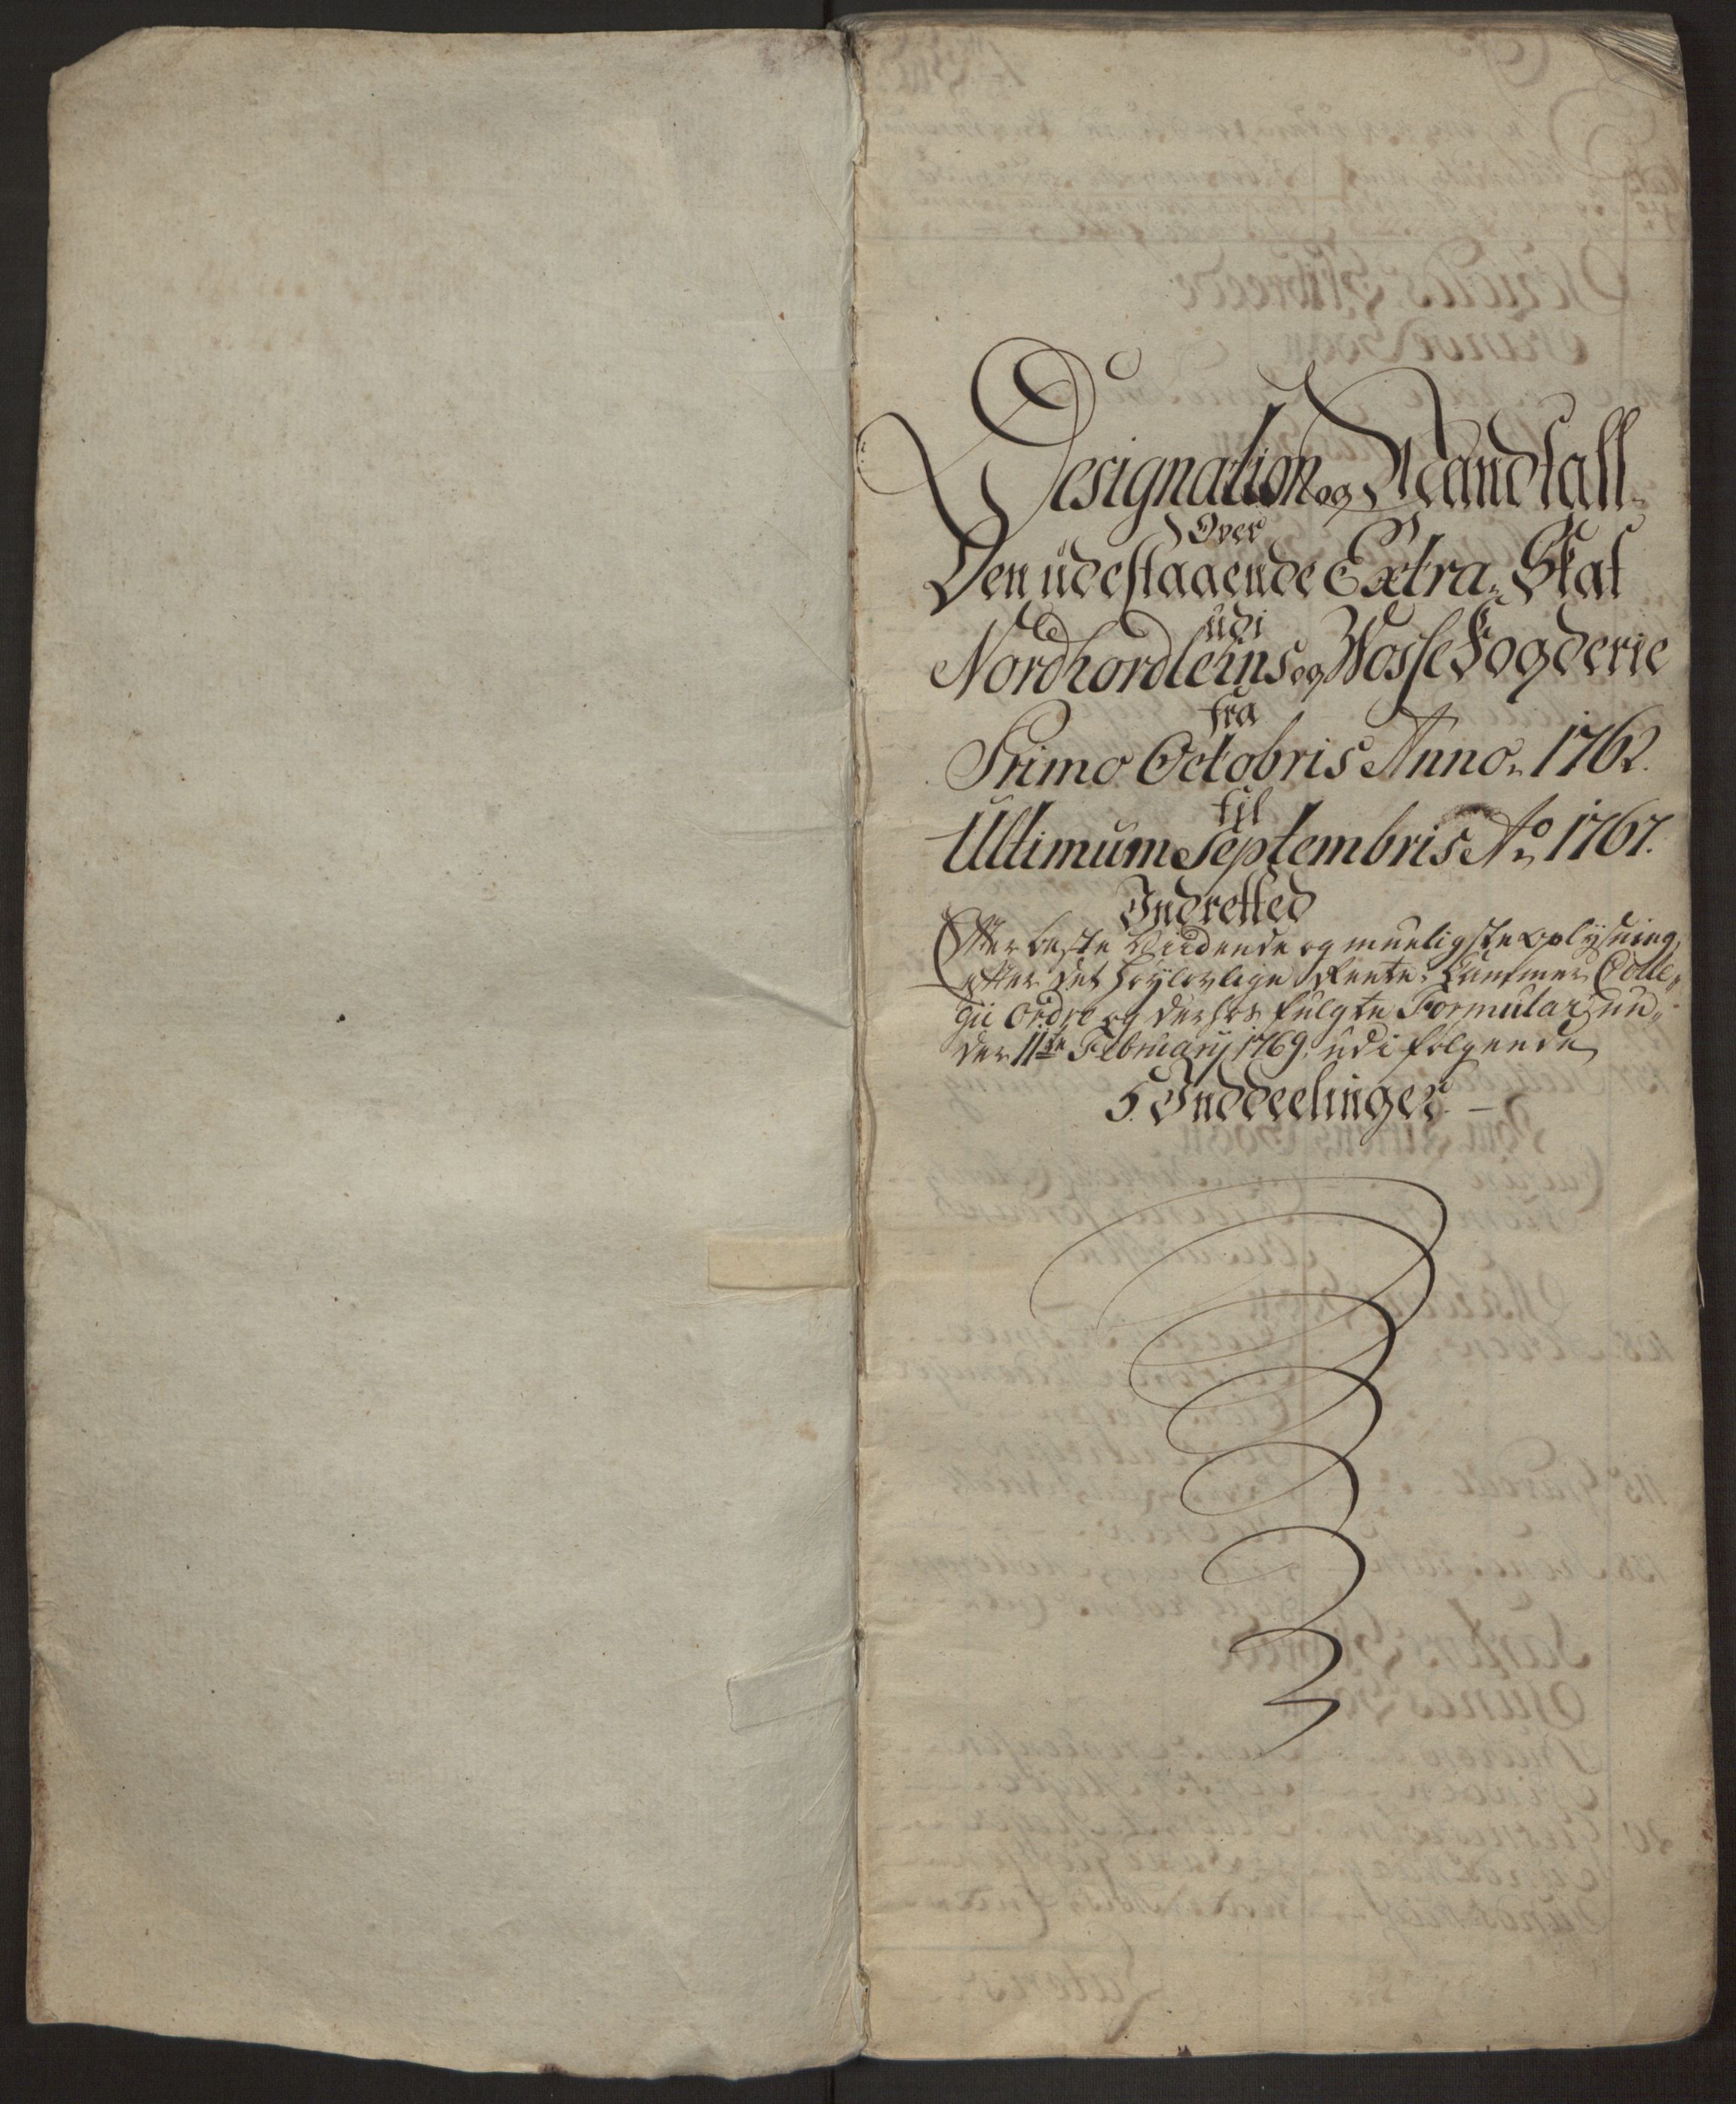 Designation og Mandtall
Over
Den udestaaende Extra Skat
udi
Nordhordlehns og Wosse Fogderie
fra
Primo Octobris Anno 1762.
til
Ultimum Septembris Ao 1767.
Indretted
Efter beste Viidende og mueligste oplysning
efter det Høylovlige Rente Cammer Colle„
gii Ordre og derhos fulgte Formular un„
der 11te February 1769. udi følgende
5. Inddeelinger. —